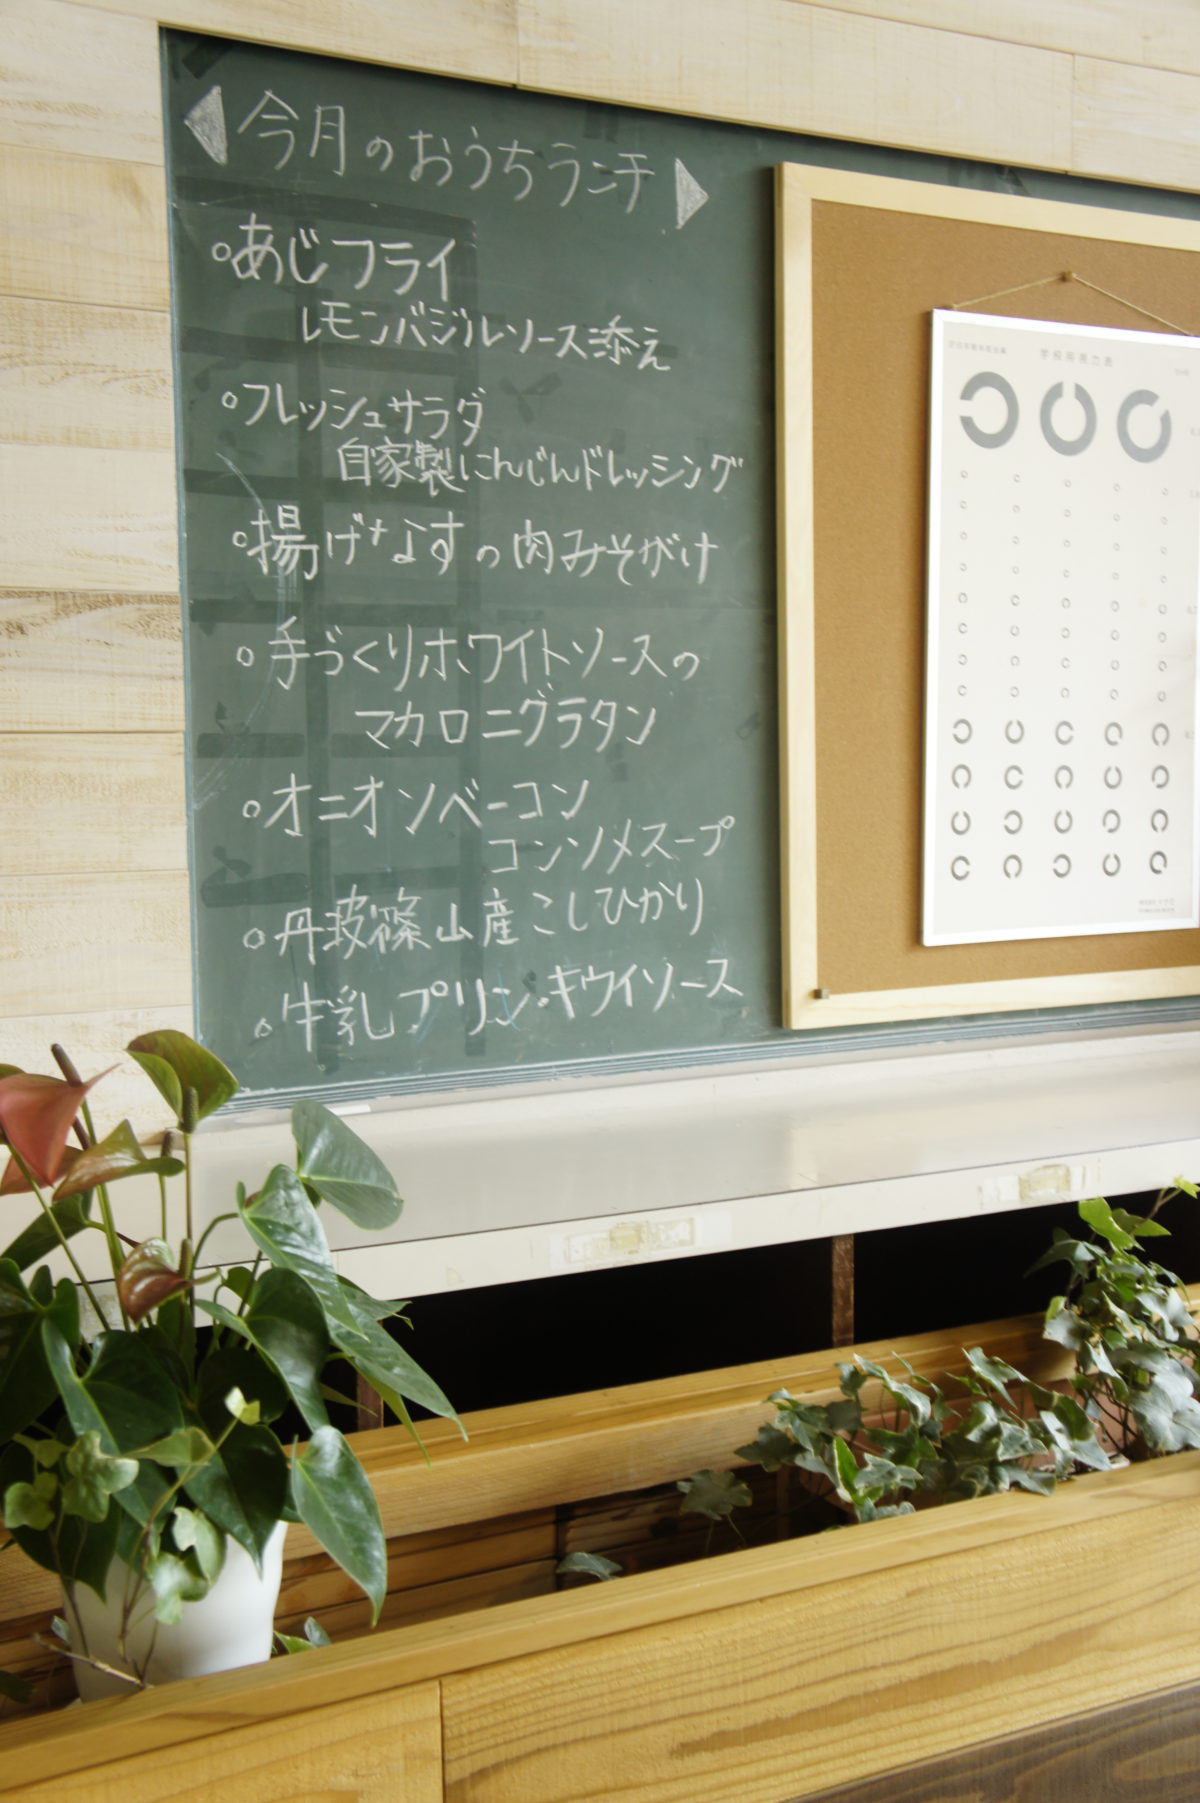 今月のおうちランチ
○あじフライ
レモンバジルソース添え
○フレッシュサラダ
自家製にんじんドレッシング
○揚げなすの肉みそがけ
○手づくりホワイトソースの
マカロニグラタン
○オニオンベーコン
コンソメスープ
○丹波篠山産こしひかり
○牛乳プリン・キウイソース
学校用視力表